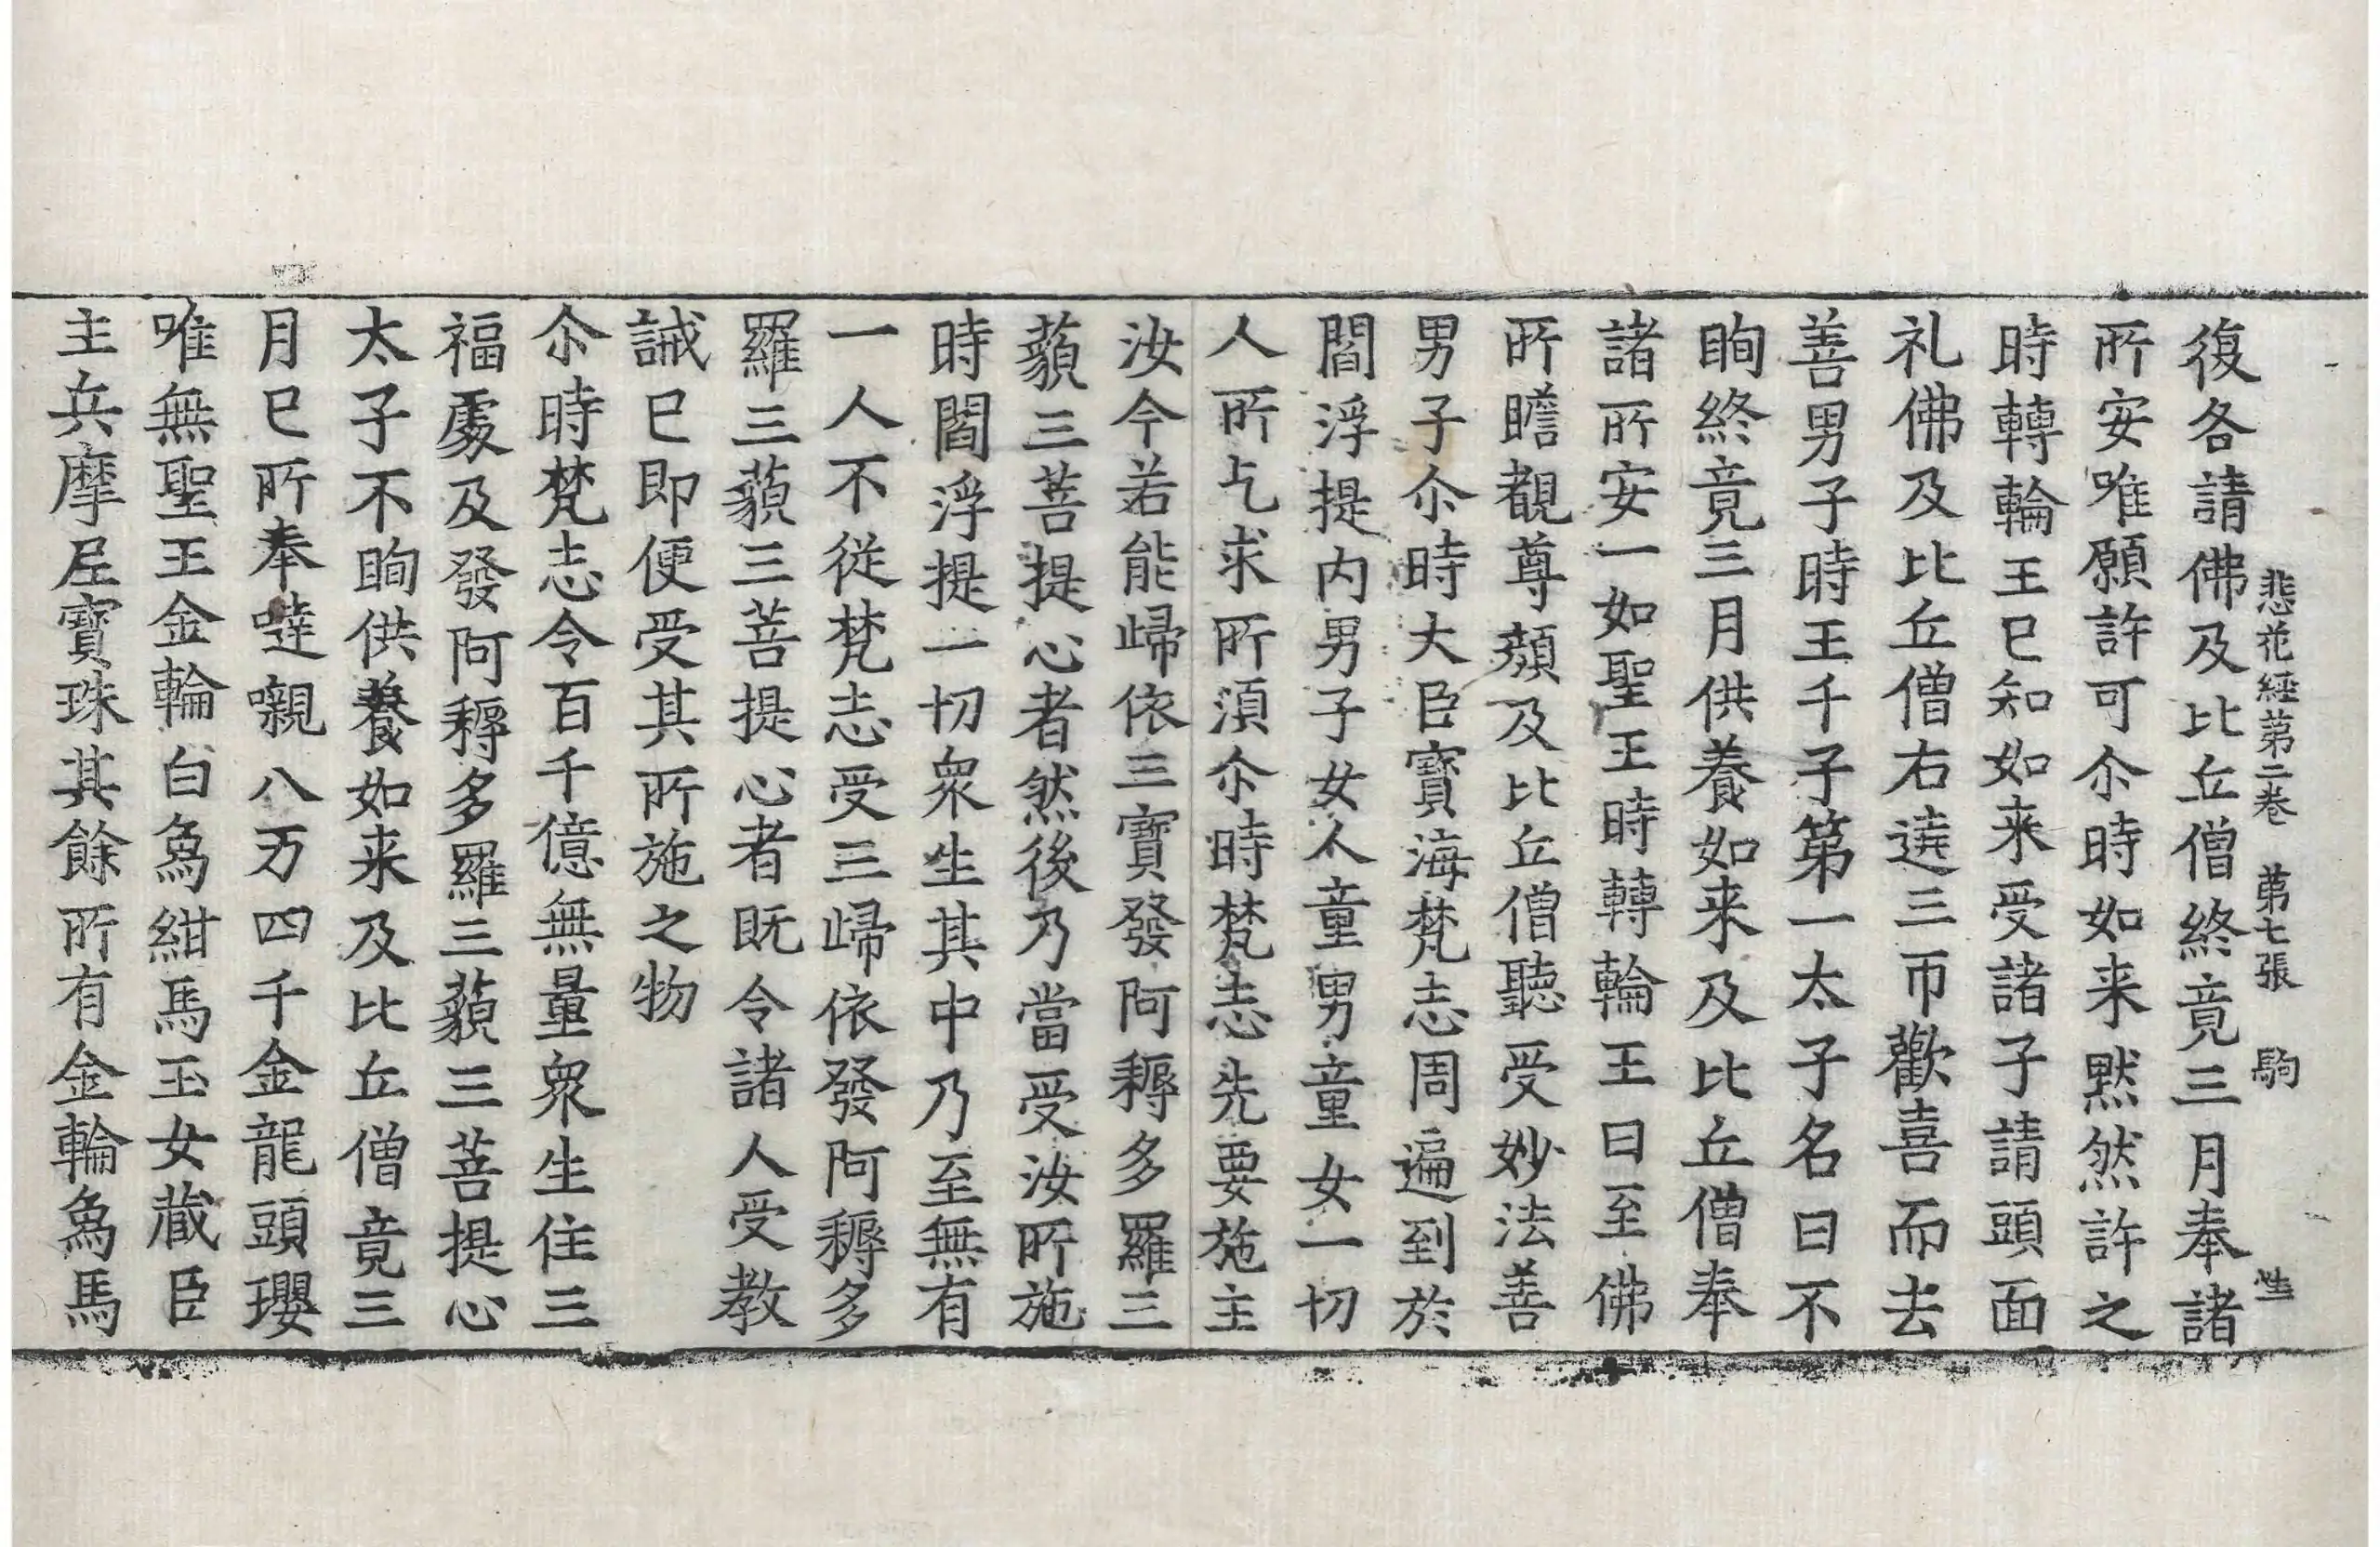 悲花經第二卷　第七張　駒
復各請佛及比丘僧終竟三月奉諸
所安唯願許可尒時如来黙然許之
時轉輪王已知如来受諸子請頭面
礼佛及比丘僧右遶三帀歡喜而去
善男子時王千子第一太子名曰不
眴終竟三月供養如来及比丘僧奉
諸所安一如聖王時轉輪王日至佛
所瞻覩尊顔及比丘僧聽受妙法善
男子尒時大臣寶海梵志周遍到於
閻浮提内男子女人童男童女一切
人所乞求所須尒時梵志先要施主
汝今若能歸依三寶發阿耨多羅三
藐三菩提心者然後乃當受汝所施
時閻浮提一切衆生其中乃至無有
一人不從梵志受三歸依發阿耨多
羅三藐三菩提心者既令諸人受教
誡已即便受其所施之物
尒時梵志令百千億無量衆生住三
福處及發阿耨多羅三藐三菩提心
太子不眴供養如来及比丘僧竟三
月已所奉噠嚫八万四千金龍頭瓔
唯無聖王金輪白象紺馬玉女蔵臣
主兵摩尼寶珠其餘所有金輪象馬